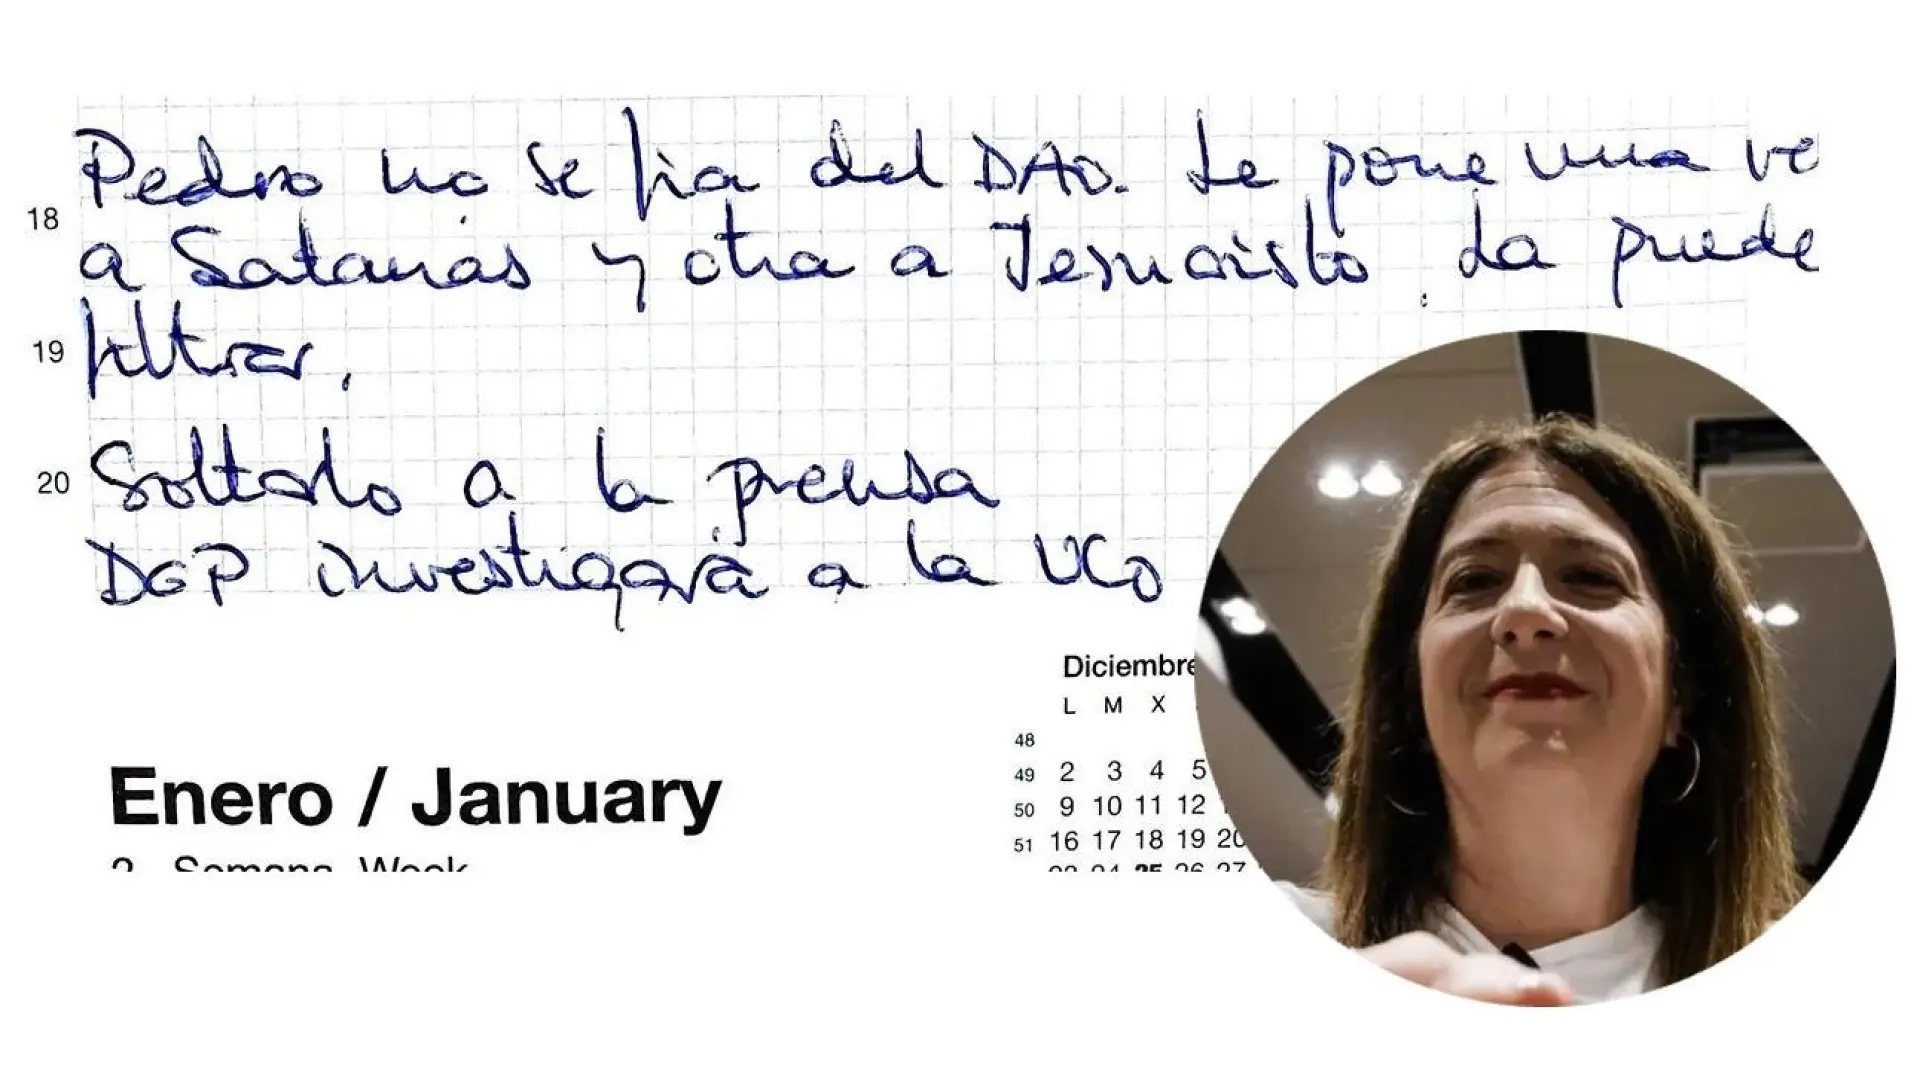 Pedro no se fía del DAO. Le pone una ve
18
a Satanás y otra a Jesucristo. La puede
19
filtrar.
20
Soltarlo a la prensa
DGP investigará a la UCO
Diciembre
L M X
48
49 2 3 4 5
50 9 10 11 12
51 16 17 18 19 20
23 24 25 26 27
Enero / January
2. Semana Week